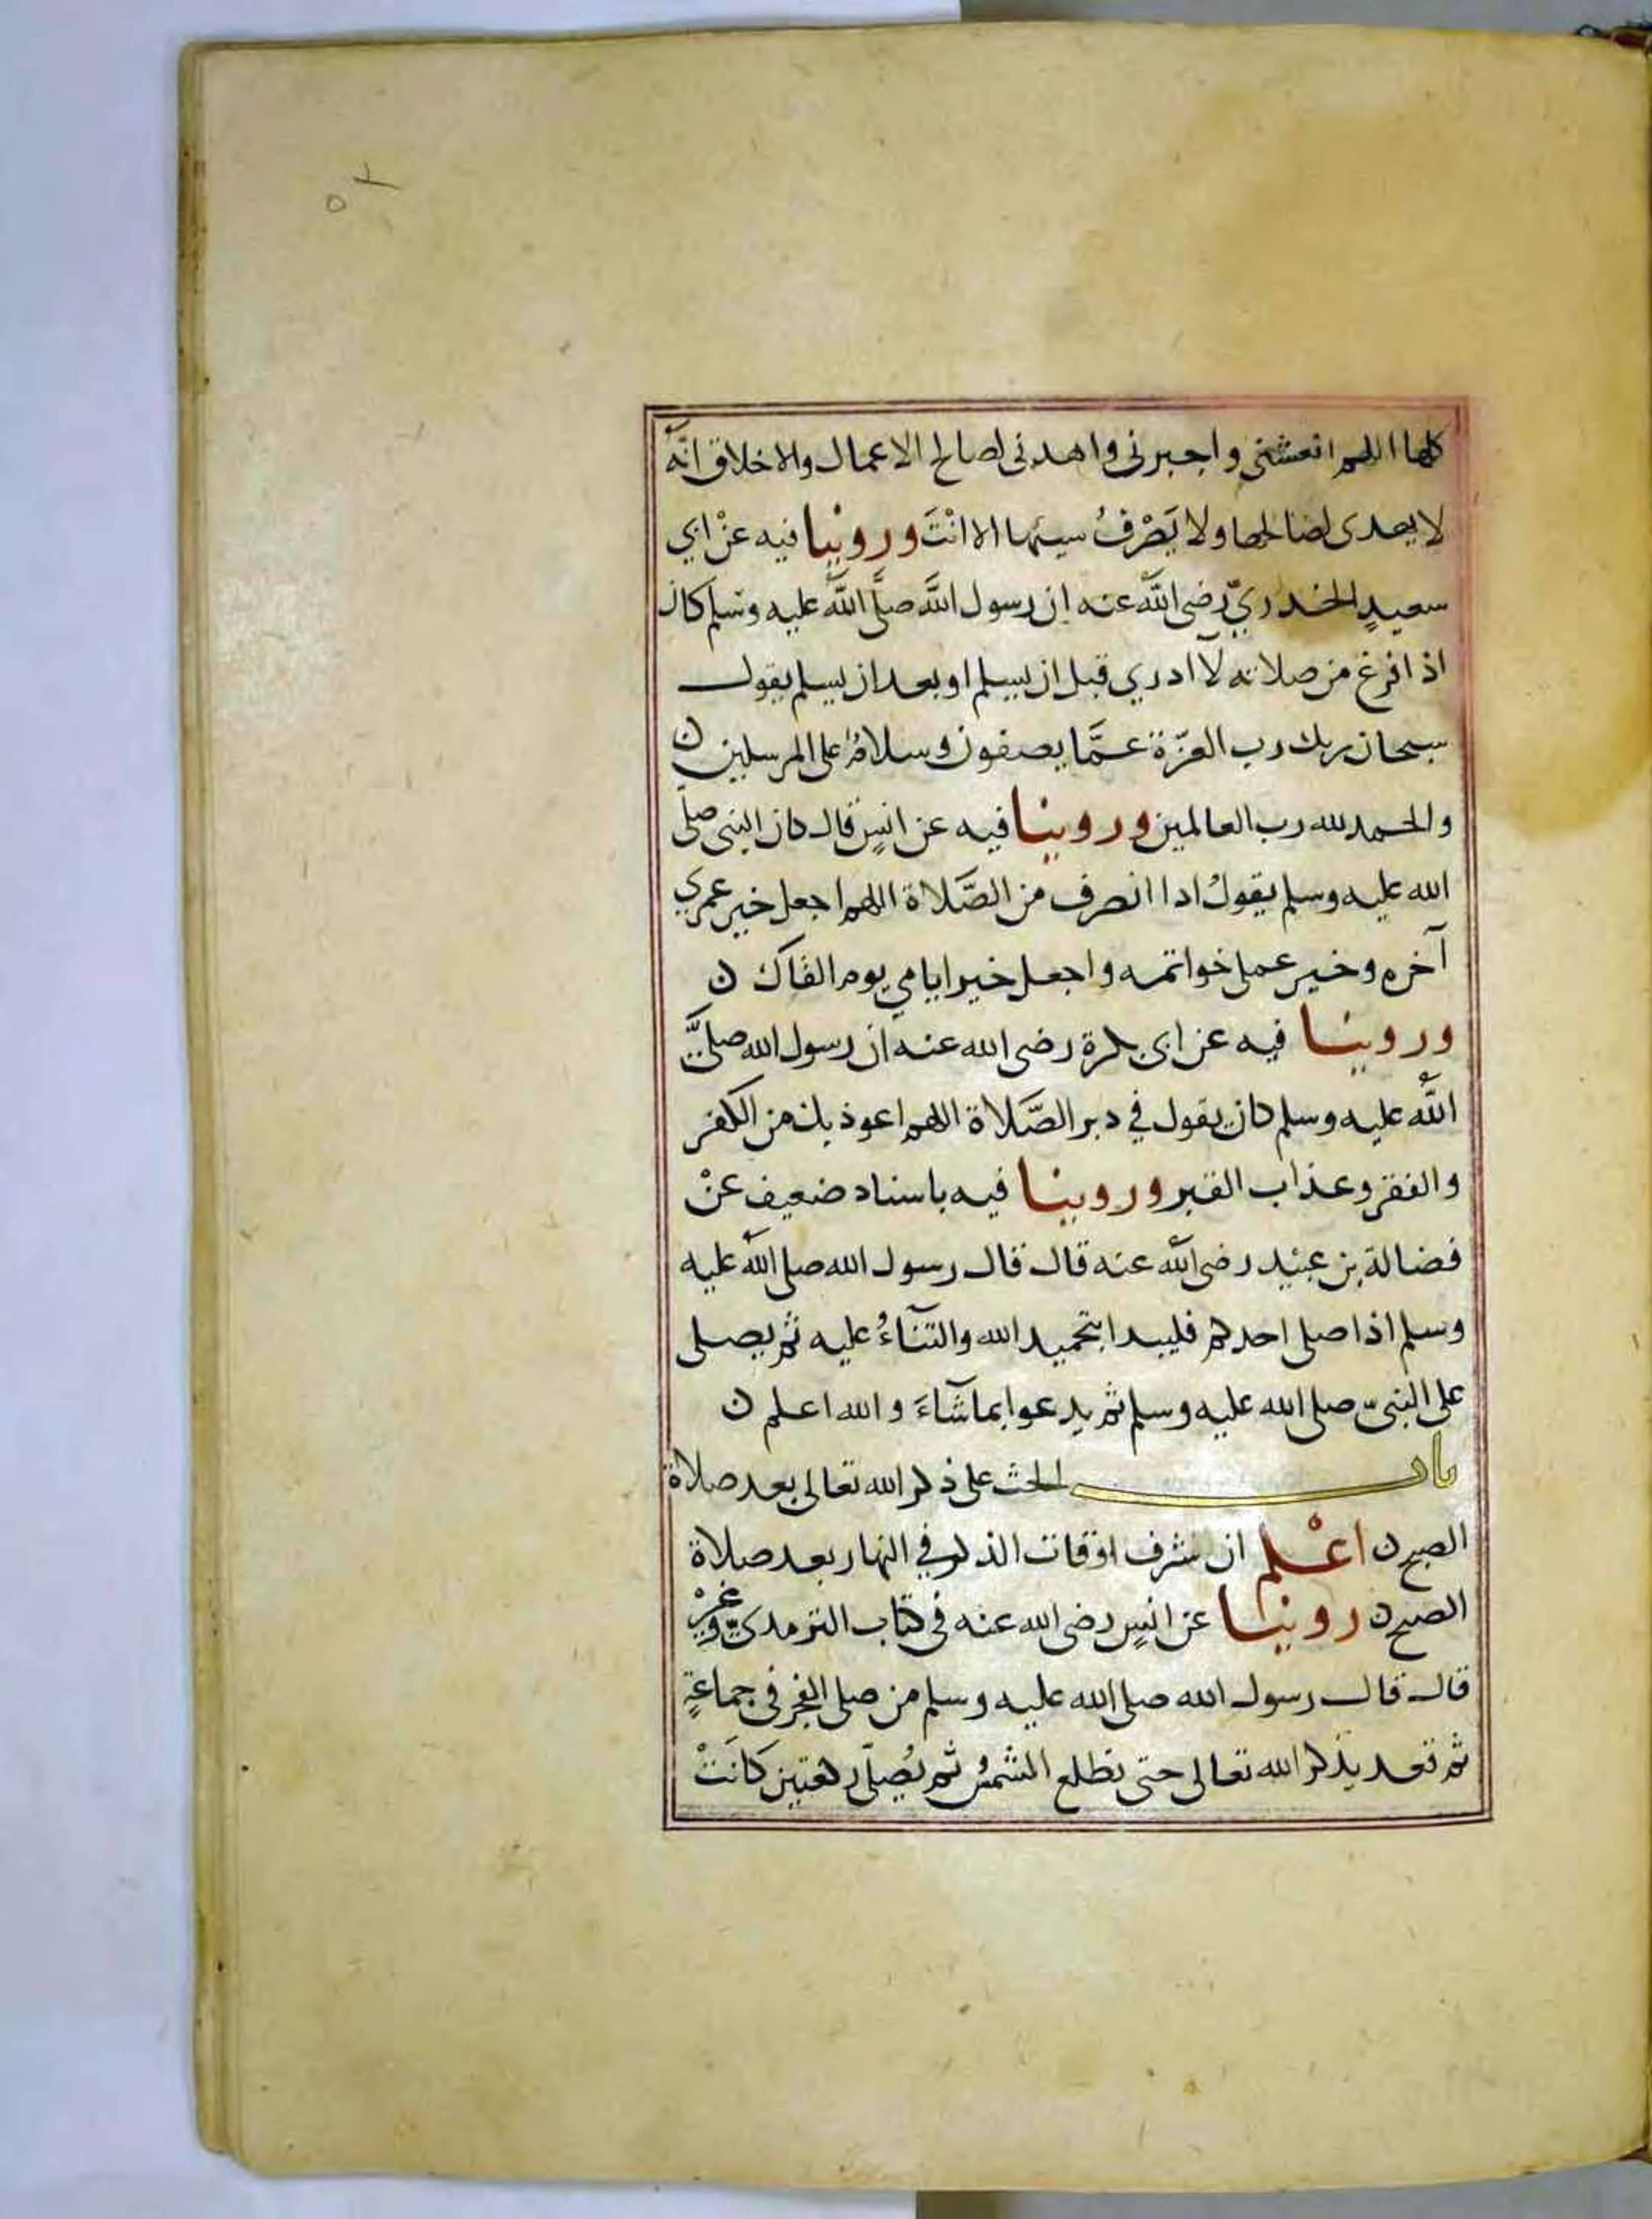 ٥٢
كلها اللهم انعشني واجبرني واهدني لصالح الاعمال والاخلاق انّه
لا يهدى لصالحها ولا يَصْرفُ سيئها الا انْتَ وروينا فيه عنْ ابي
سعيدٍ الخدريّ رضى اللّٰه عنه ان رسول اللّٰه صلَّى اللّٰه عليه وسلم كان
اذا فرغ من صلاته لآ ادري قبل ان يسلم او بعد ان يسلم يقول
سبحان ربك رب العزّة عمَّا يصفون وسلامٌ على المرسلين ن
والحمد لله رب العالمين وروينا فيه عن انسٍ قال كان النبى صلّى
الله عليه وسلم يقولُ اذا انصرف من الصَّلاة اللهم اجعل خير عمري
آخره وخير عملى خواتمه واجعل خير ايامي يوم القاك ن
وروينا فيه عن ابى بكرة رضى الله عنه ان رسول الله صلىَّ
اللّٰه عليه وسلم كان يقول في دبر الصَّلاة اللهم اعوذ بك من الكفر
والفقر وعذاب القبر وروينا فيه باسناد ضعيف عنْ
فضالة بن عبيد رضى اللّٰه عنه قال قال رسول الله صلى اللّٰه عليه
وسلم اذا صلى احدكم فليبدا بتحميد الله والثنآءُ عليه ثم يصلى
على النبىّ صلى الله عليه وسلم ثم يدعوا بما شآءَ والله اعلم ن
باب الحث على ذكر الله تعالى بعد صلاة
الصبح ن اعْلم ان شرف اوقات الذكر في النهار بعد صلاة
الصبح ن روينا عن انسٍ رضى الله عنه فى كتاب الترمدىّ وغيْر
قال قال رسول الله صلى الله عليه وسلم من صلى الفجر فى جماعةٍ
ثم قعد يذكر الله تعالى حتى تطلع الشمسُ ثم يُصلّى ركعتين كانَتْ